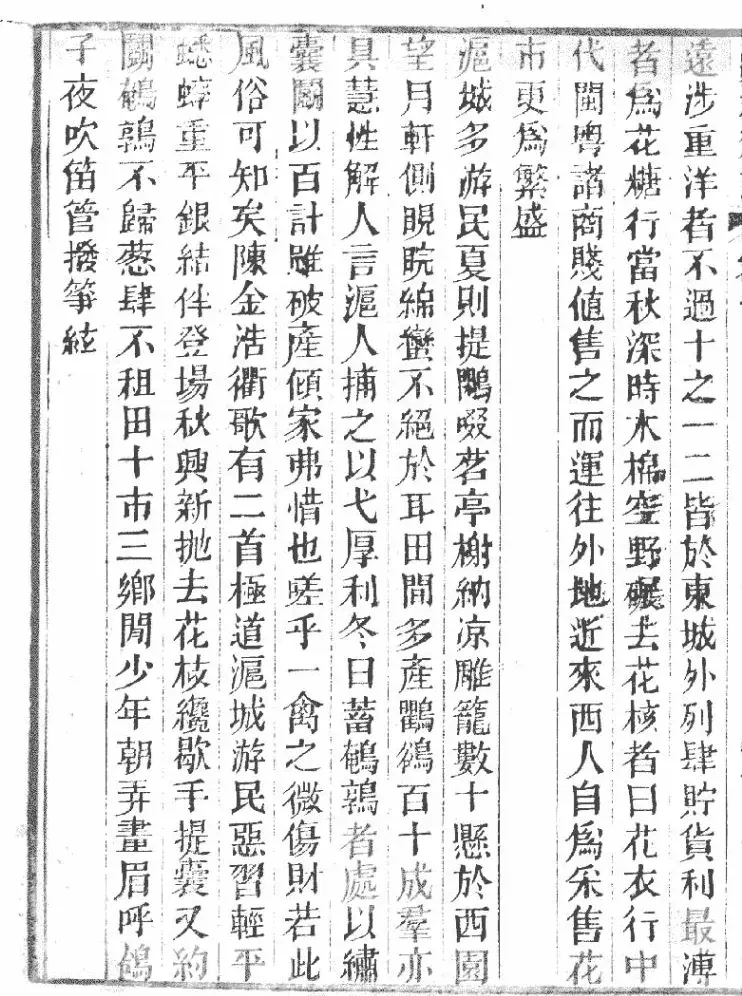 遠涉重洋者不過十之一二皆於東城外列肆貯貨利最溥
者爲花糖行當秋深時木棉空野碾去花核者曰花衣行中
代閩粤諸商賤値售之而運往外地近來西人自爲采售花
市更爲繁盛
滬城多游民夏則提鷳啜茗亭榭納凉雕籠數十懸於西園
望月軒側睍睆綿蠻不絕於耳田間多產鸜鵒百十成羣亦
具慧性解人言滬人捕之以弋厚利冬日蓄鵪鶉者處以繡
囊鬬以百計雖破產傾家弗惜也嗟乎一禽之微傷財若此
風俗可知矣陳金浩衢歌有二首極道滬城游民惡習輕平
蟋蟀重平銀結伴登場秋興新抛去花枝纔歇手提囊又約
鬬鵪鶉不歸葱肆不租田十市三鄉閒少年朝弄畫眉呼鴿
子夜吹笛管撥箏絃